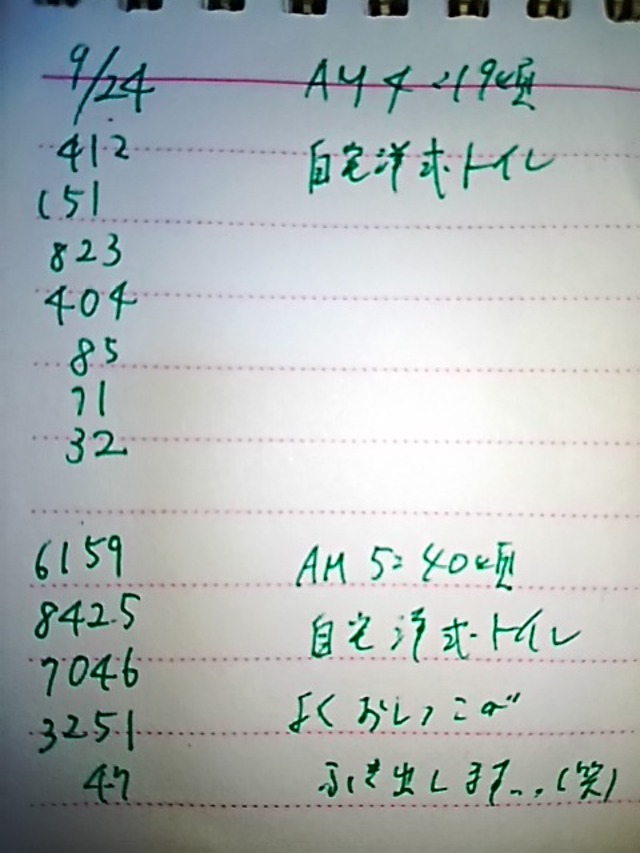 9/24 AM 4:19頃
412 自宅洋式トイレ
151
823
404
85
71
32
6159 AM 5:40頃
8425 自宅洋式トイレ
7046
3251 よくおしっこが
47 ふき出します...(笑)